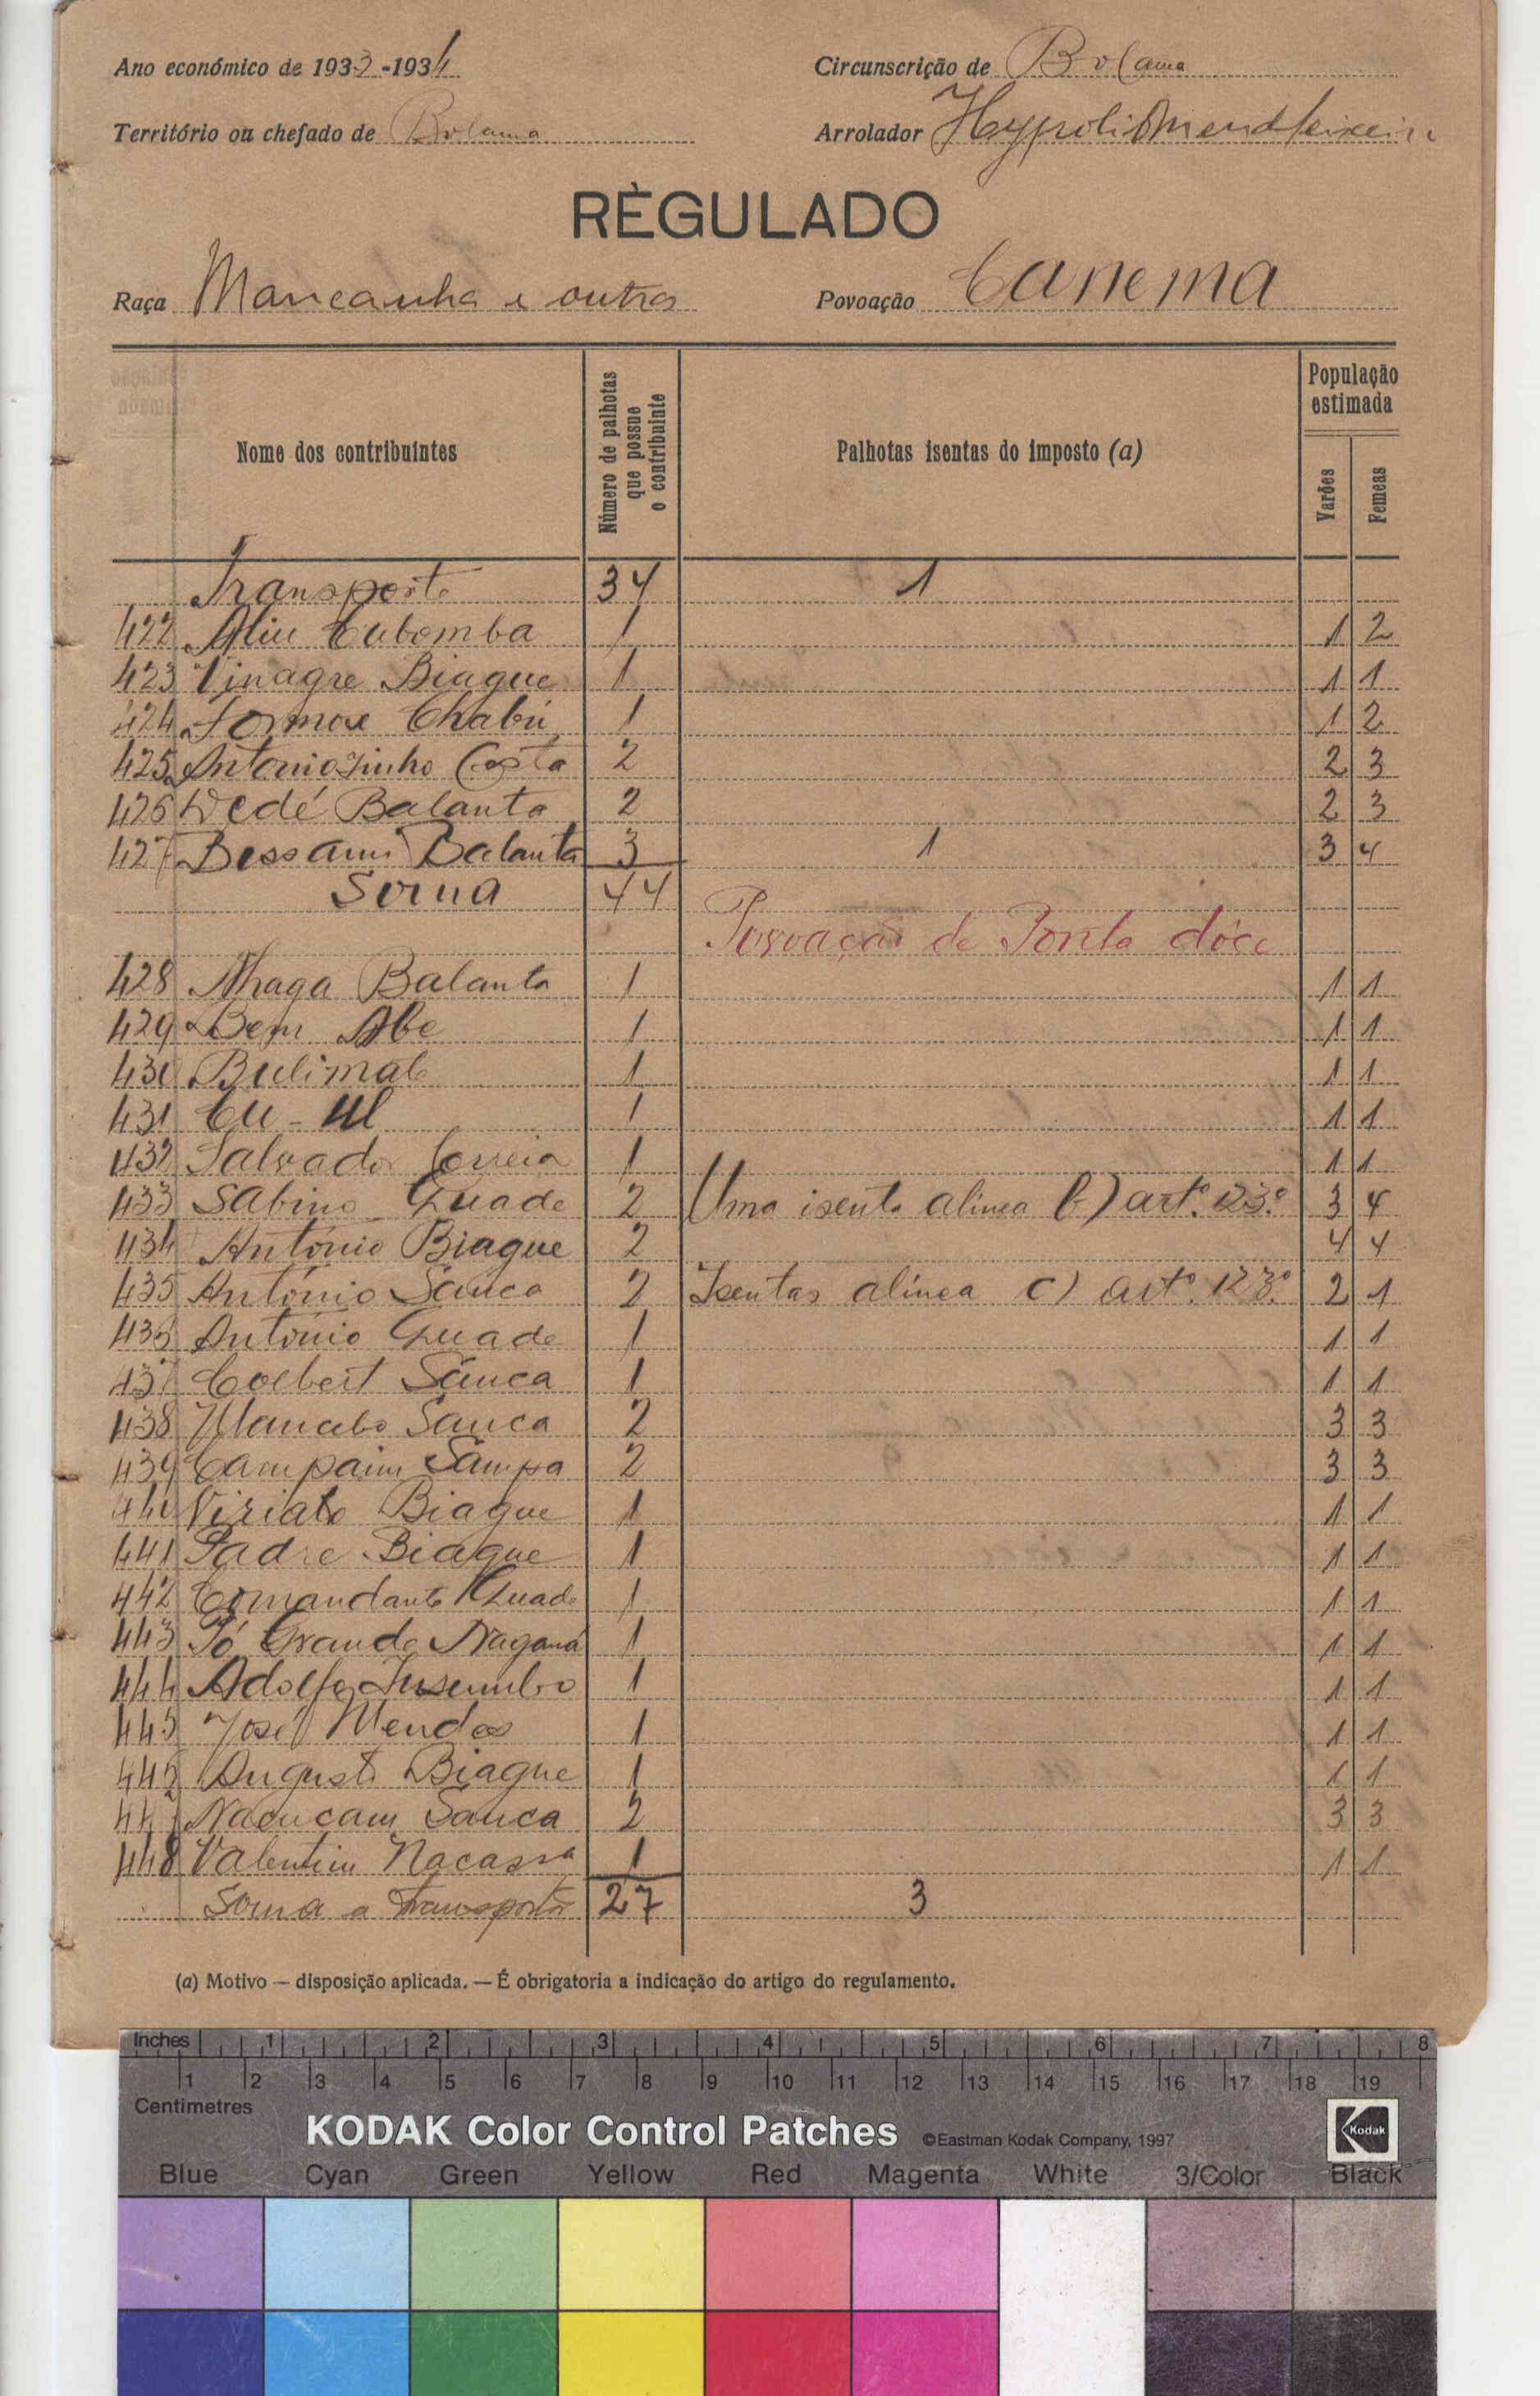 Ano económico de 1933-1934 Circunscrição de Bolama
Território ou chefado de Bolama Arrolador
RÈGULADO
Raça Mancanha e outros Povoação Canema
Nome dos contribuintes Número de palhotas que possue o contribuinte Palhotas isentas do imposto (a) População estimada
Varões Femeas
Transporte 34 1
422 Aliu Cubomba 1 1 2
423 Vinagre Biague 1 1 1
424 Chabú 1 1 2
425 Antoniozinho Costa 2 2 3
426 Dedé Balanta 2 2 3
427 Bessami Balanta 3 1 3 4
Soma 44
Povoação de Ponta dóce
428 Nhaga Balanta 1 1 1
429 Bem Abe 1 1 1
430 Bulimab 1 1 1
431 Cu-Ul 1 1 1
432 Salvador Correia 1 1 1
433 Sabino Quade 2 Uma isenta alinea b) artº. 123.º 3 4
434 António Biague 2 4 4
435 António Sanca 2 Isentas alínea c) artº. 123.º 2 1
436 António Quade 1 1 1
437 Coebert Sanca 1 1 1
438 Mancabo Sanca 2 3 3
439 Campaim Sampa 2 3 3
440 Viriato Biague 1 1 1
441 Padre Biague 1 1 1
442 Comandante Quade 1 1 1
443 Tó Grande Nagana 1 1 1
444 Adolfo 1 1 1
445 José Mendes 1 1 1
446 Augusto Biague 1 1 1
447 Nacucam Sanca 2 3 3
448 Valentim Nacassa 1 1 1
Soma a transportar 27 3
(a) Motivo — disposição aplicada. — É obrigatoria a indicação do artigo do regulamento.
Inches 1 2 3 4 5 6 7 8
1 2 3 4 5 6 7 8 9 10 11 12 13 14 15 16 17 18 19
Centimetres
KODAK Color Control Patches ©Eastman Kodak Company, 1997 Kodak
Blue Cyan Green Yellow Red Magenta White 3/Color Black